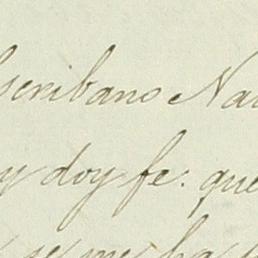 escribano Na
y doy fe: que
se me ha